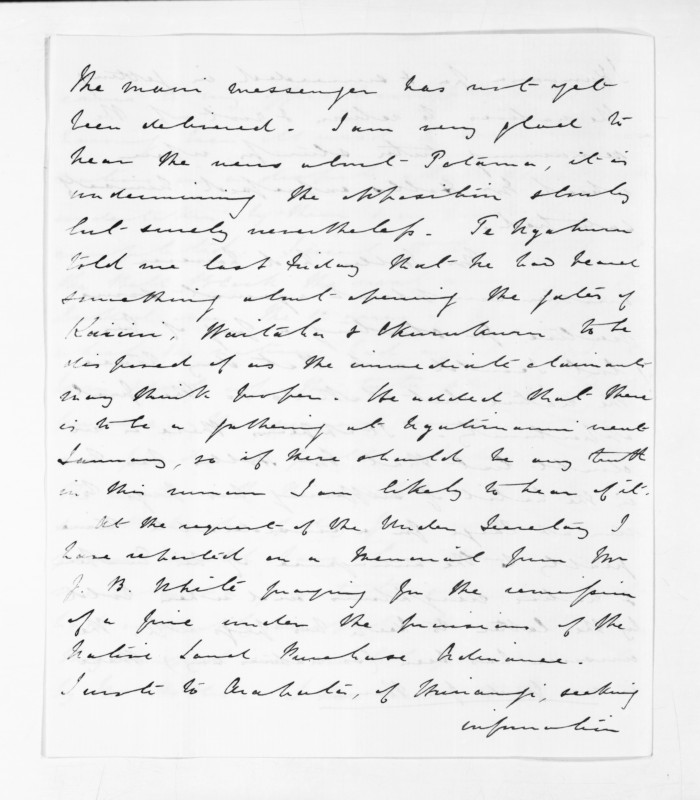 The maori messenger has not yet
been delivered. I am very glad to
hear the news about Patama, it is
undermining the opposition slowly
but surely nevertheless. Te Ngahuru
told me last Friday that he had heard
something about opening the gates of
Kaririri, Waitaha & Okurukuru to be
disposed of as the immediate claimants
may think proper. He added that there
is to be a gathering at Ngatimaru next
January, so if there should be any truth
in this rumour I am likely to hear of it.
At the request of the Under Secretary I
have reported on a Memorial from Mr
J. B. White praying for the remission
of a fine under the provisions of the
Native Land Purchase Ordinance.
I wrote to of seeking
information